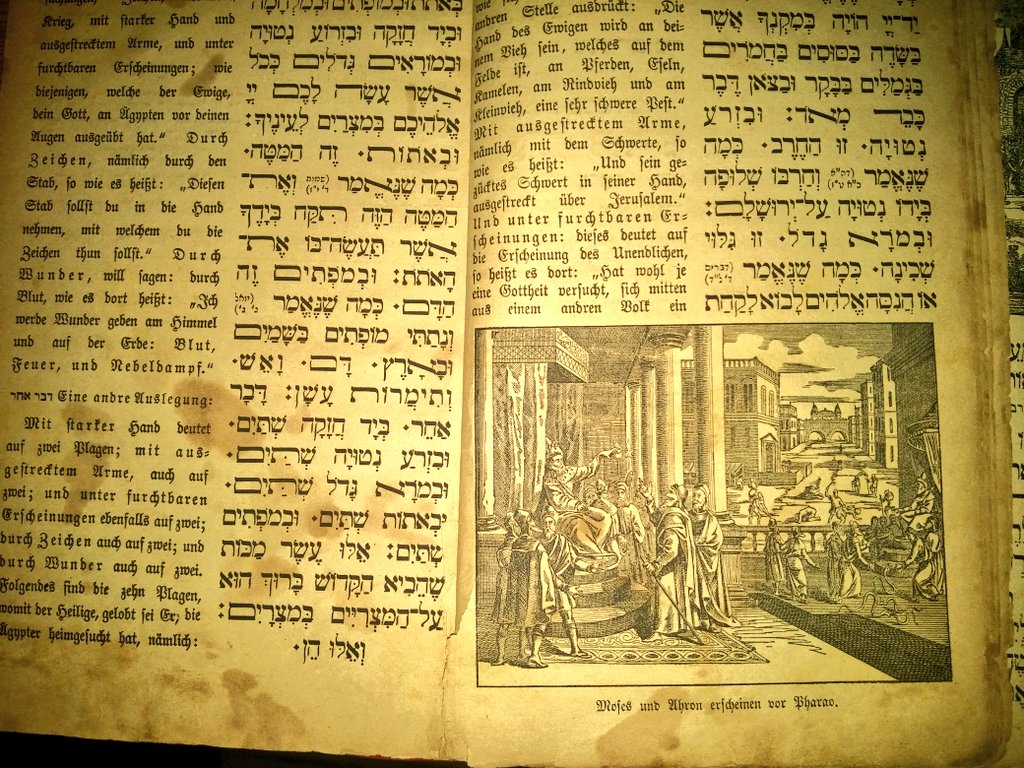 יַד־יְיָ הוֹיָה בְּמִקְנְךָ אֲשֶׁר
בַּשָּׂדֶה בַּסּוּסִים בַּחֲמֹרִים
בַּגְּמַלִּים בַּבָּקָר וּבַצֹּאן דֶּבֶר
כָּבֵד מְאֹד: וּבִזְרֹעַ
נְטוּיָה. זוֹ הַחֶרֶב. כְּמָה
שֶׁנֶּאֱמַר וְחַרְבּוֹ שְׁלוּפָה
בְּיָדוֹ נְטוּיָה עַל־יְרוּשָׁלָםִ:
וּבְמֹרָא גָדֹל. זוֹ גִּלּוּי
שְׁכִינָה. כְּמָה שֶׁנֶּאֱמַר (דברים
אוֹ הֲנִסָּה אֱלֹהִים לָבוֹא לָקַחַת
andren Stelle ausdrückt: „Die
Hand des Ewigen wird an dei-
nem Vieh sein, welches auf dem
Felde ist, an Pferden, Eseln,
Kamelen, am Rindvieh und am
Kleinvieh, eine sehr schwere Pest.“
Mit ausgestrecktem Arme,
nämlich mit dem Schwerte, so
wie es heißt: „Und sein ge-
zücktes Schwert in seiner Hand,
ausgestreckt über Jerusalem.“
Und unter furchtbaren Er-
scheinungen: dieses deutet auf
die Erscheinung des Unendlichen,
so heißt es dort: „Hat wohl je
eine Gottheit versucht, sich mitten
aus einem andren Volk ein
Moses und Ahron erscheinen vor Pharao.
בְּאֹתוֹת וּבְמוֹפְתִים וּבְמִלְחָמָה
וּבְיָד חֲזָקָה וּבִזְרוֹעַ נְטוּיָה
וּבְמוֹרָאִים גְּדֹלִים כְּכֹל
אֲשֶׁר עָשָׂה לָכֶם יְיָ
אֱלֹהֵיכֶם בְּמִצְרַיִם לְעֵינֶיךָ:
וּבְאֹתוֹת. זֶה הַמַּטֶּה.
כְּמָה שֶׁנֶּאֱמַר (שמות וְאֶת־
הַמַּטֶּה הַזֶּה תִּקַּח בְּיָדֶךָ
אֲשֶׁר תַּעֲשֶׂה־בּוֹ אֶת־
הָאֹתֹת: וּבְמֹפְתִים זֶה
הַדָּם. כְּמָה שֶׁנֶּאֱמַר (יואל
וְנָתַתִּי מוֹפְתִים בַּשָּׁמַיִם
וּבָאָרֶץ. דָּם. וָאֵשׁ.
וְתִימְרוֹת עָשָׁן: דָּבָר
אַחֵר. בְּיָד חֲזָקָה שְׁתַּיִם.
וּבִזְרֹעַ נְטוּיָה שְׁתַּיִם.
וּבְמֹרָא גָּדֹל שְׁתַּיִם.
וּבְאֹתוֹת שְׁתַּיִם. וּבְמֹפְתִים
שְׁתַּיִם: אֵלּוּ עֶשֶׂר מַכּוֹת
שֶׁהֵבִיא הַקָּדוֹשׁ בָּרוּךְ הוּא
עַל־הַמִּצְרִיִּים בְּמִצְרָיִם:
וְאֵלּוּ הֵן.
Krieg, mit starker Hand und
ausgestrecktem Arme, und unter
furchtbaren Erscheinungen; wie
diejenigen, welche der Ewige,
dein Gott, an Ägypten vor deinen
Augen ausgeübt hat.“ Durch
Zeichen, nämlich durch den
Stab, so wie es heißt: „Diesen
Stab sollst du in die Hand
nehmen, mit welchem du die
Zeichen thun sollst.“ Durch
Wunder, will sagen: durch
Blut, wie es dort heißt: „Ich
werde Wunder geben am Himmel
und auf der Erde: Blut,
Feuer, und Nebeldampf.“
דבר אחר Eine andre Auslegung:
Mit starker Hand deutet
auf zwei Plagen; mit aus-
gestrecktem Arme, auch auf
zwei; und unter furchtbaren
Erscheinungen ebenfalls auf zwei;
durch Zeichen auch auf zwei; und
durch Wunder auch auf zwei.
Folgendes sind die zehn Plagen,
womit der Heilige, gelobt sei Er, die
Ägypter heimgesucht hat, nämlich: